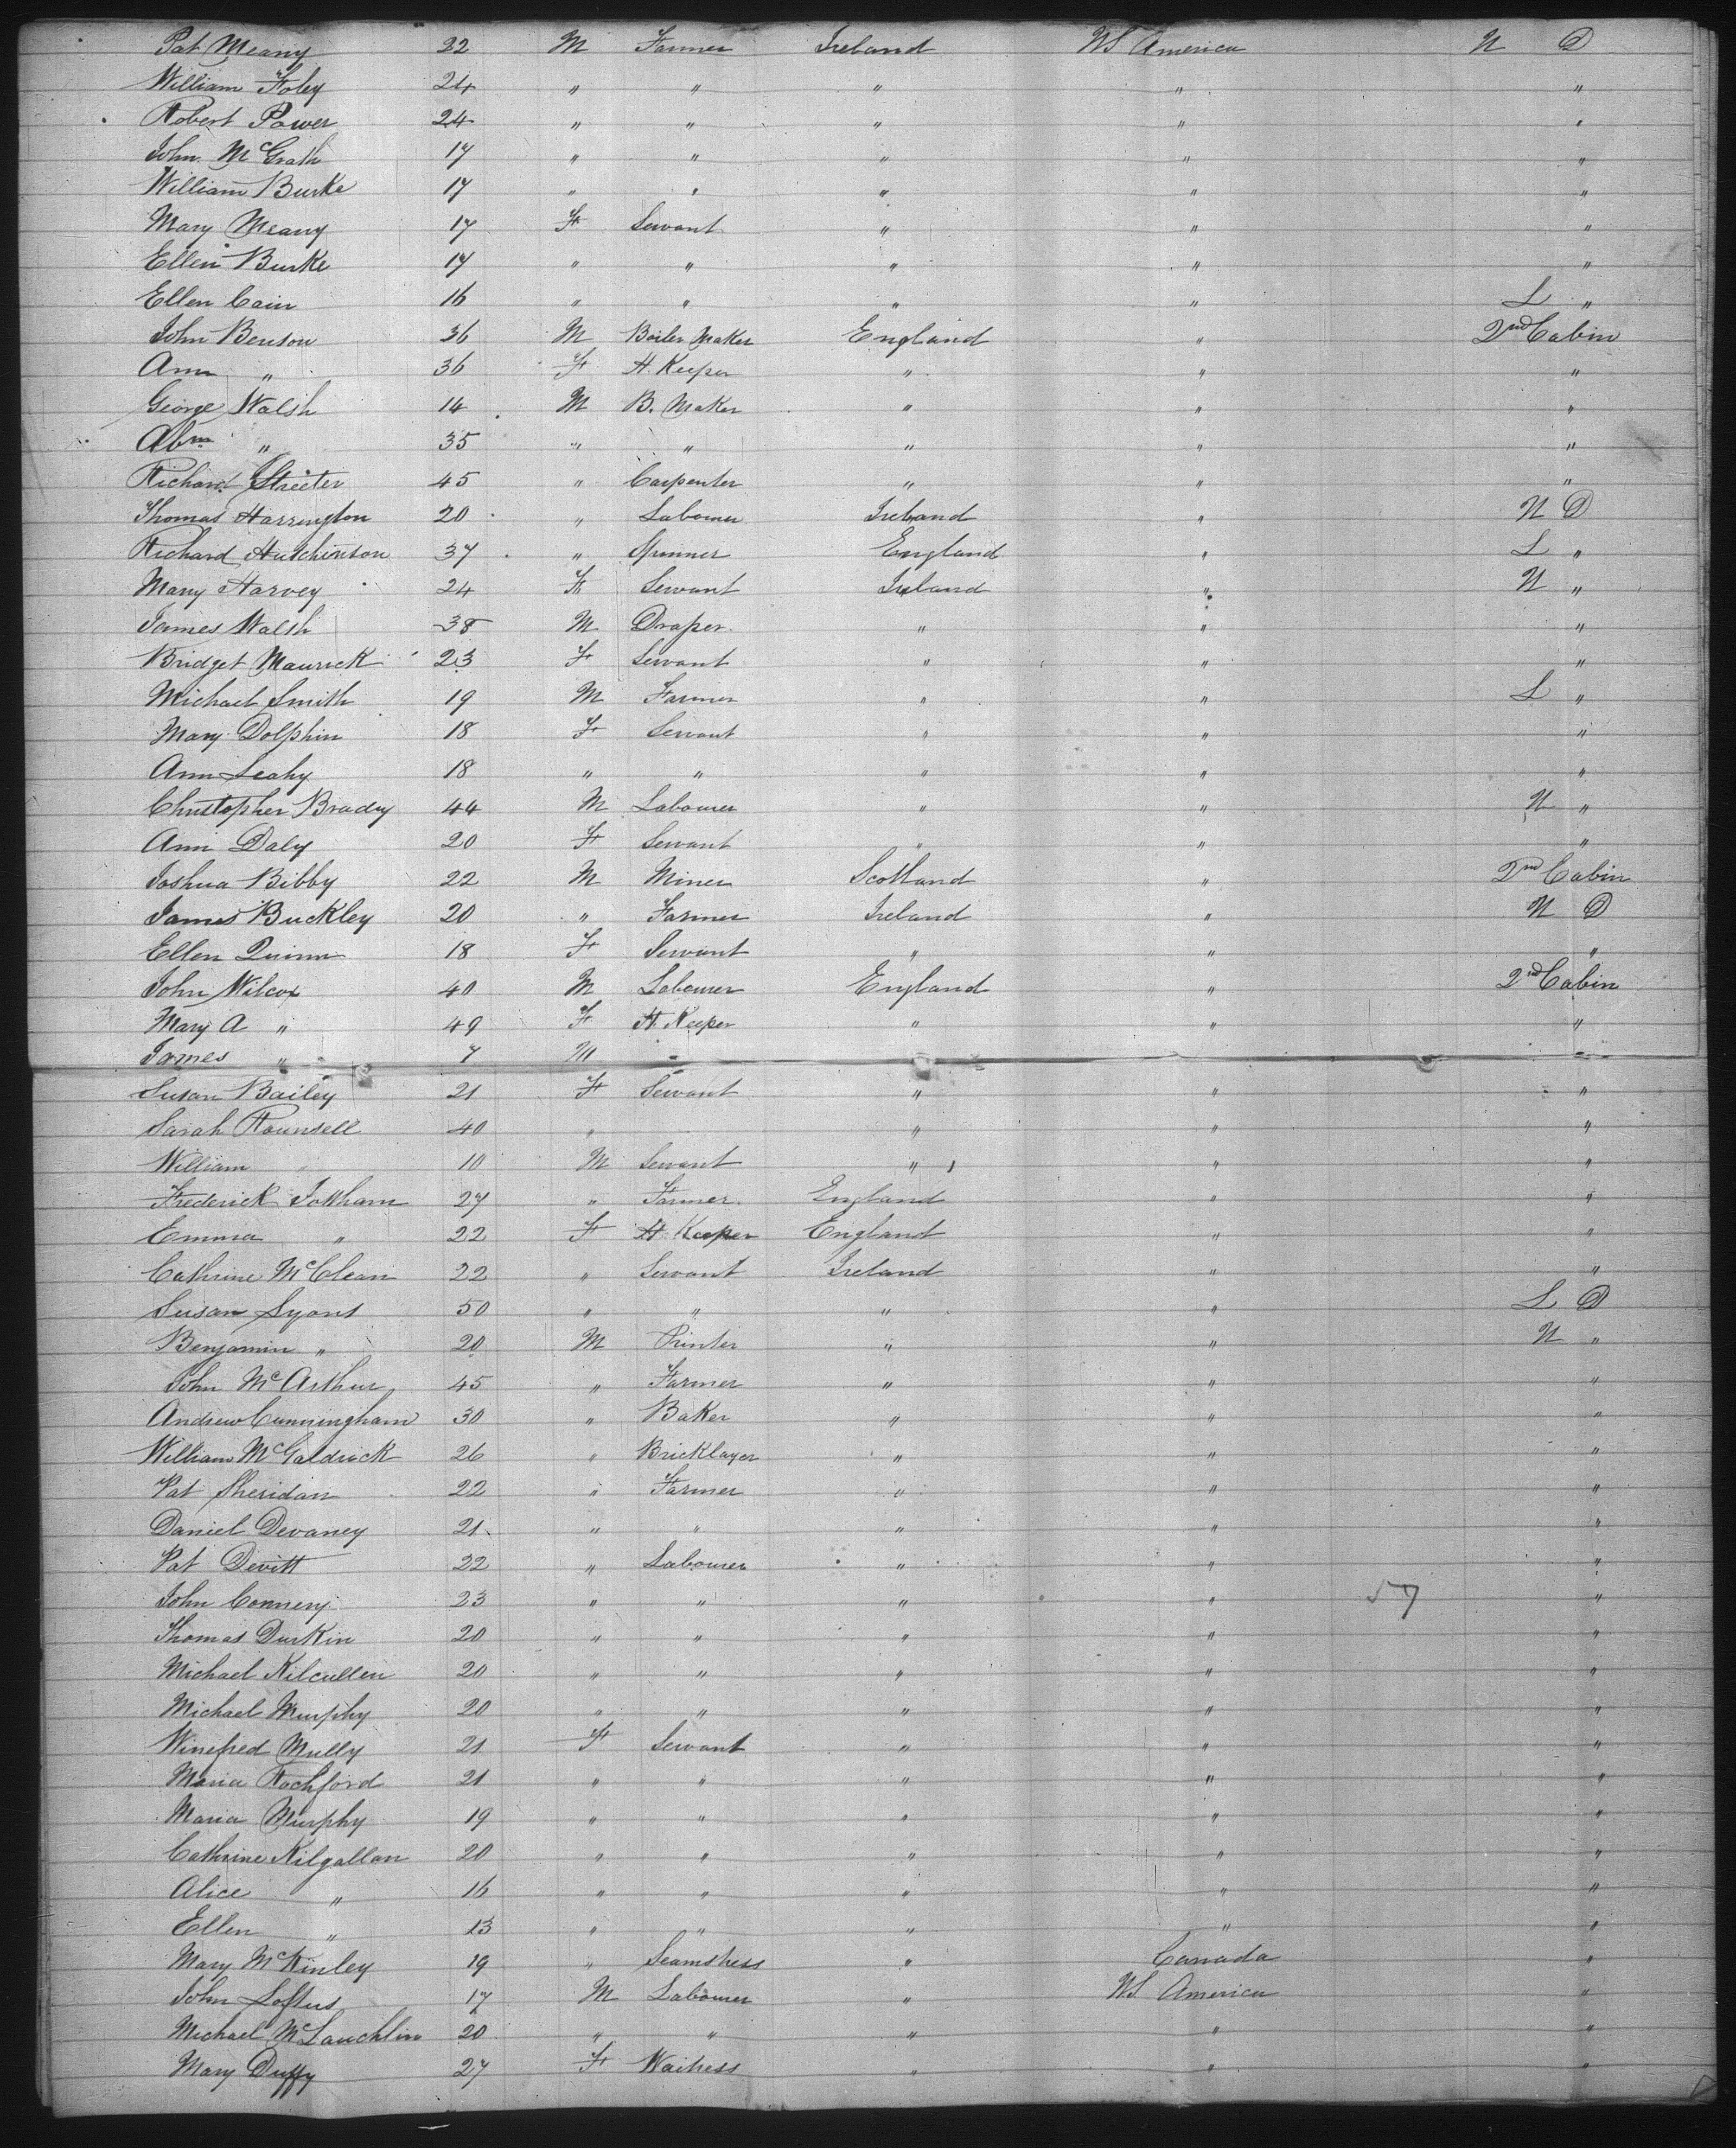 Pat Meany 22 M Farmer Ireland US America U D
William Foley 24 " " " " "
Robert Power 24 " " " " "
John McGrath 17 " " " " "
William Burke 17 " " " " "
Mary Meany 17 F Servant " " "
Ellen Burke 17 " " " " "
Ellen Cain 16 " " " " L "
John Benson 36 M Boiler Maker England " 2nd Cabin
Ann " 36 F H. Keeper " " "
George Walsh 14 M B. Maker " " "
Abm " 35 " " " " "
Richard Streeter 45 " Carpenter " " "
Thomas Harrington 20 " Labourer Ireland " U D
Richard Hutchinson 37 " Spinner England " L "
Mary Harvey 24 F Servant Ireland " U "
James Walsh 38 M Draper " " "
Bridget Maurick 23 F Servant " " "
Michael Smith 19 M Farmer " " L "
Mary Dolphin 18 F Servant " " "
Ann Leahy 18 " " " " "
Christopher Brady 44 M Labourer " " U "
Ann Daly 20 F Servant " " "
Joshua Bibby 22 M Miner Scotland " 2nd Cabin
James Buckley 20 " Farmer Ireland " U D
Ellen Quinn 18 F Servant " " "
John Wilcox 40 M Labourer England " 2nd Cabin
Mary A " 49 F H. Keeper " " "
James " 7 M
Susan Bailey 21 F Servant " " "
Sarah Rounsell 40 " " " "
William " 10 M Servant " " "
Frederick Jotham 27 " Farmer England " "
Emma " 22 F H. Keeper England " "
Cathrine McClean 22 " Servant Ireland " "
Susan Lyons 50 " " " " L D
Benjamin " 20 M Printer " " U "
John McArthur 45 " Farmer " " "
Andrew Cunningham 30 " Baker " " "
William McGoldrick 26 " Bricklayer " " "
Pat Sheridan 22 " Farmer " " "
Daniel Devaney 21 " " " " "
Pat Devitt 22 " Labourer " " "
John Connery 23 " " " " 57 "
Thomas Durkin 20 " " " " "
Michael Kilcullen 20 " " " " "
Michael Murphy 20 " " " " "
Winefred Mully 21 F Servant " " "
Maria Rochford 21 " " " " "
Maria Murphy 19 " " " " "
Cathrine Kilgallan 20 " " " " "
Alice " 16 " " " " "
Ellen " 13 " " " " "
Mary McKinley 19 " Seamstress " Canada "
John Loftus 17 M Labourer " US America "
Michael McLauchlin 20 " " " " "
Mary Duffy 27 F Waitress " " "